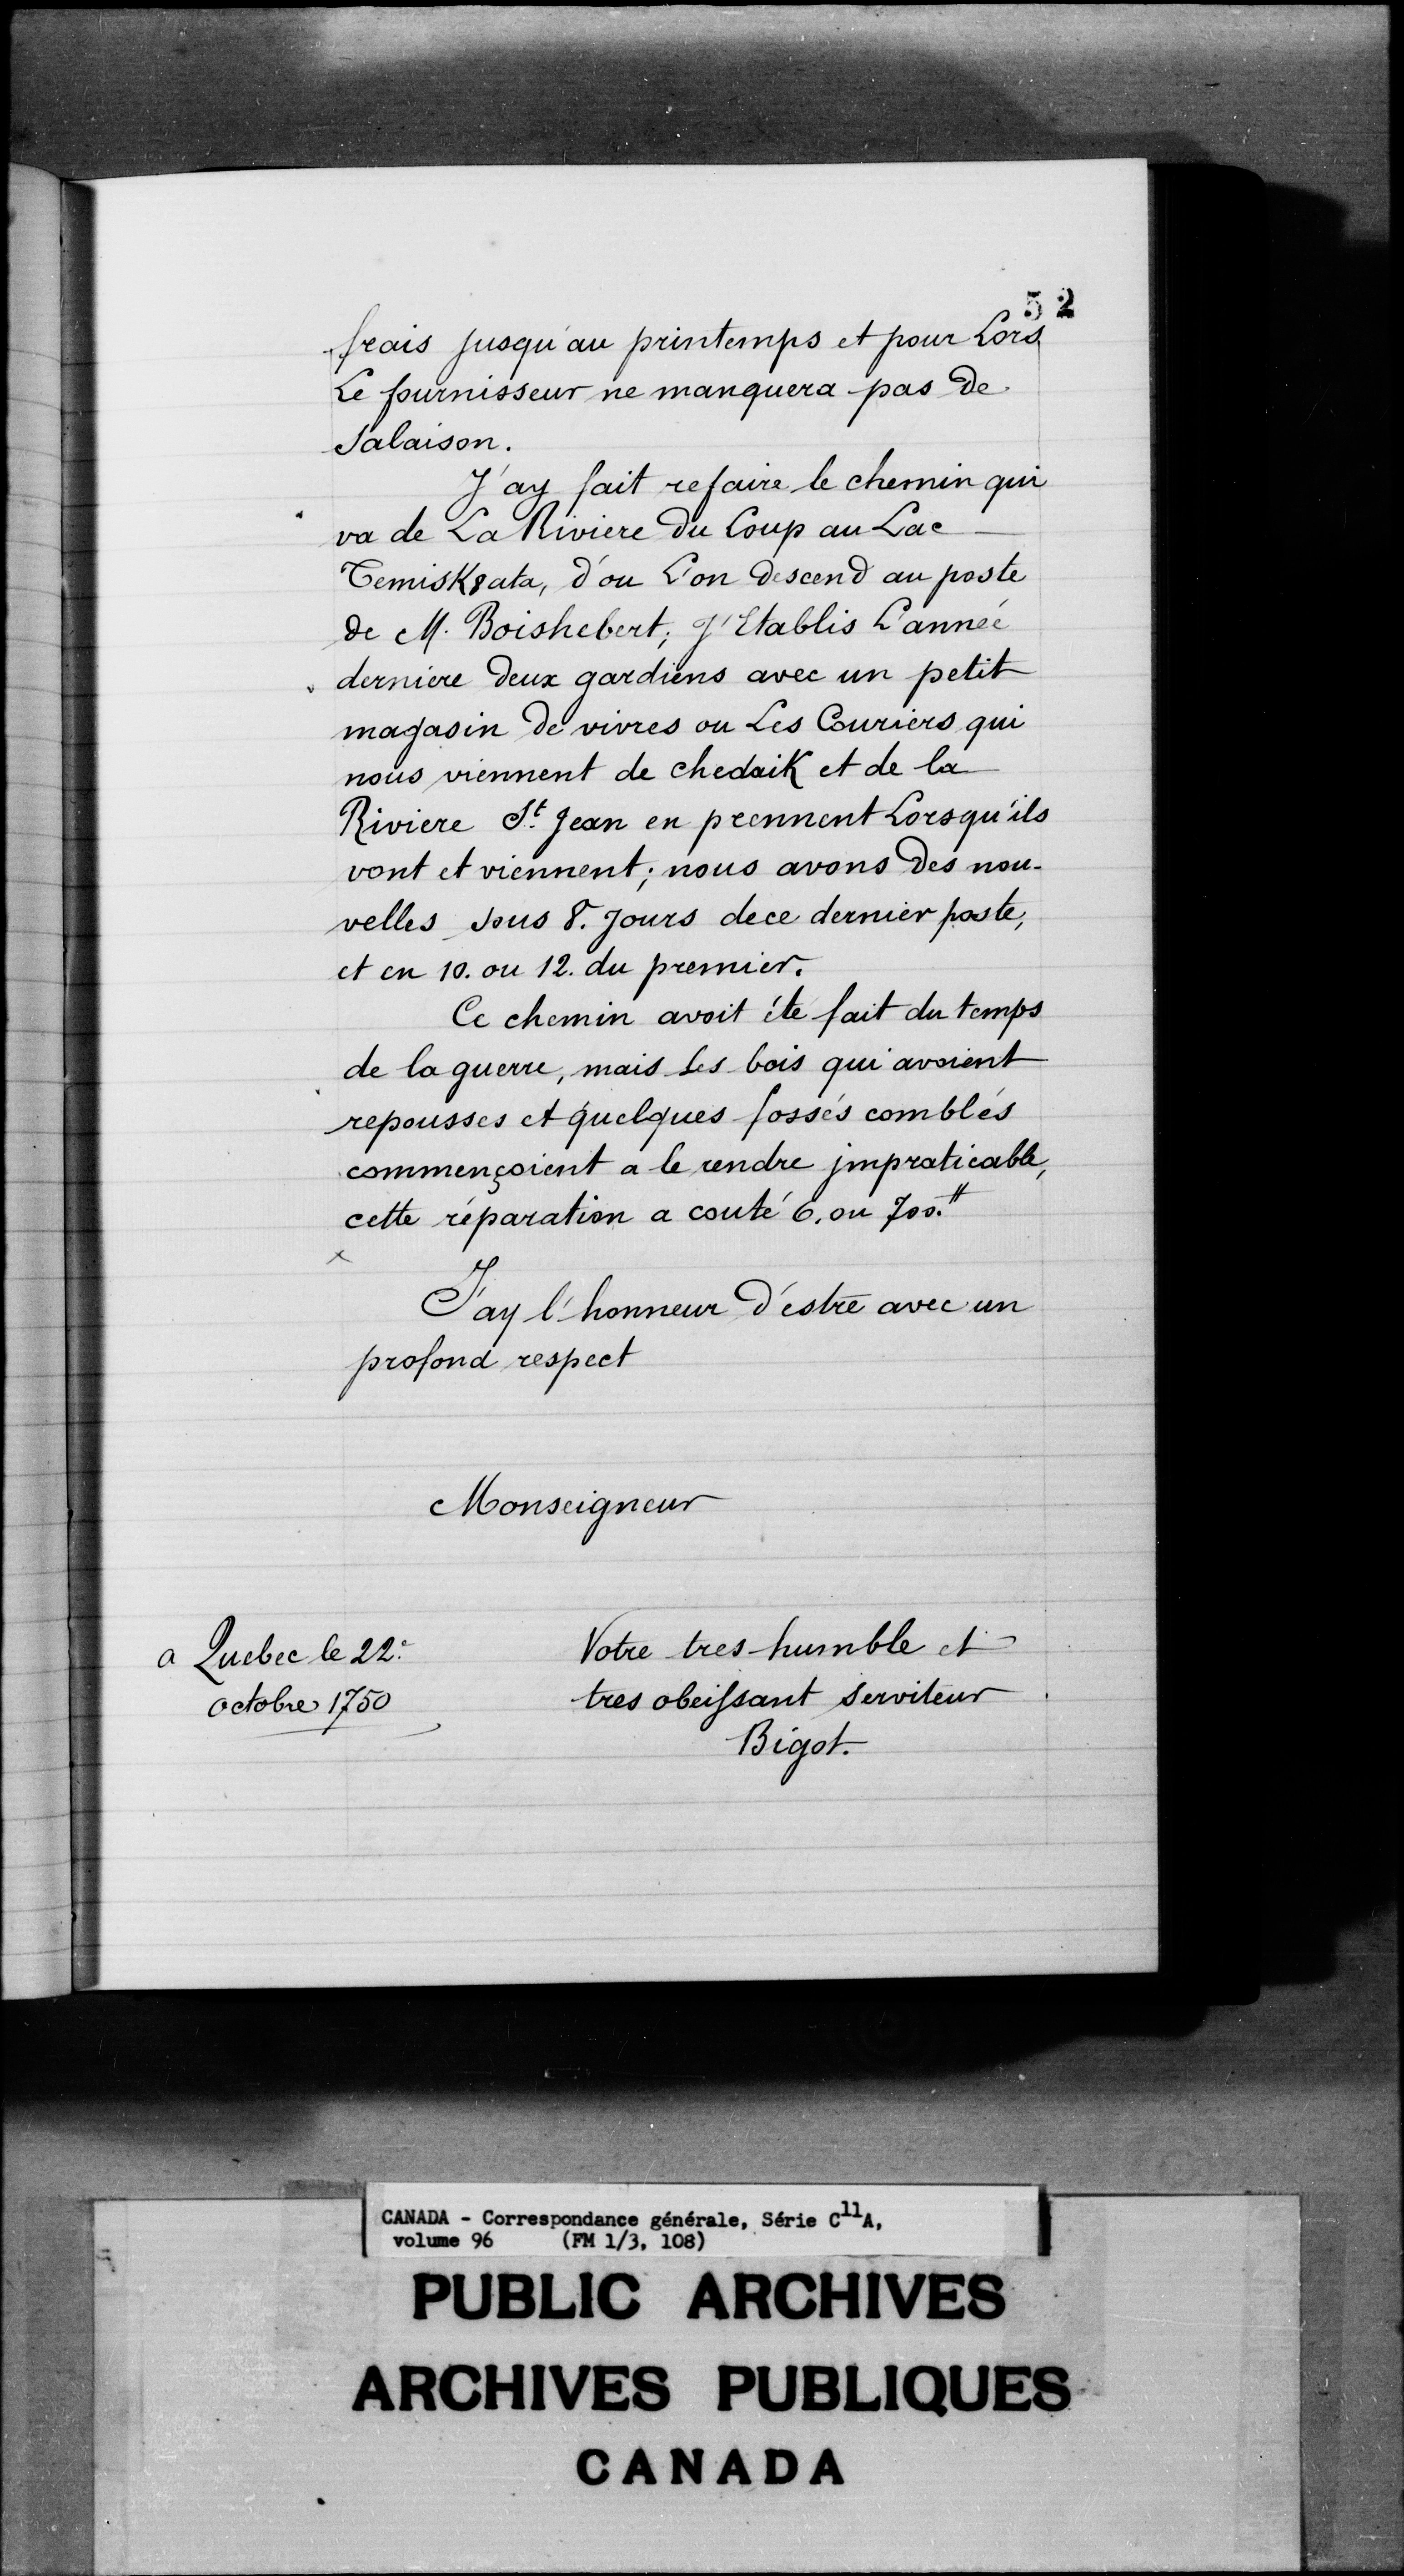 52
frais jusqu'au printemps et pour Lors
Le fournisseur ne manquera pas de
Salaison.
J'ay fait refaire le chemin qui
va de La Riviere du Loup au Lac
Temisk8ata, d'ou L'on descend au poste
de M. Boishebert; J'Etablis L'année
derniere deux gardiens avec un petit
magasin de vivres ou Les Couriers qui
nous viennent de chedaik et de la
Riviere St. Jean en prennent Lorsqu'ils
vont et viennent; nous avons des nou-
velles sous 8. Jours de ce dernier poste,
et en 10. ou 12. du premier.
Ce chemin avoit éte fait du temps
de la guerre, mais Les bois qui avoient
repousses et quelques fossés comblés
commençoient a le rendre jmpraticable,
cette réparation a couté 6. ou 700.#
x
J'ay l'honneur d'estre avec un
profond respect
Monseigneur
a Quebec le 22.e
octobre 1750
Votre tres humble et
tres obeissant serviteur
Bigot.
CANADA - Correspondance générale, Série C11A,
volume 96 (FM 1/3, 108)
PUBLIC ARCHIVES
ARCHIVES PUBLIQUES
CANADA